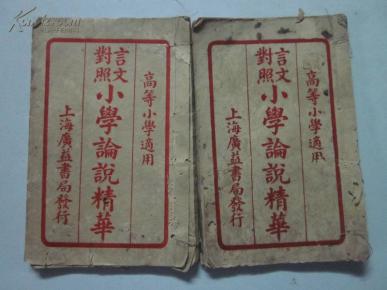 高等小學適用
言文
對照
小學論說精華
上海廣益書局發行
高等小學適用
言文
對照
小學論說精華
上海廣益書局發行